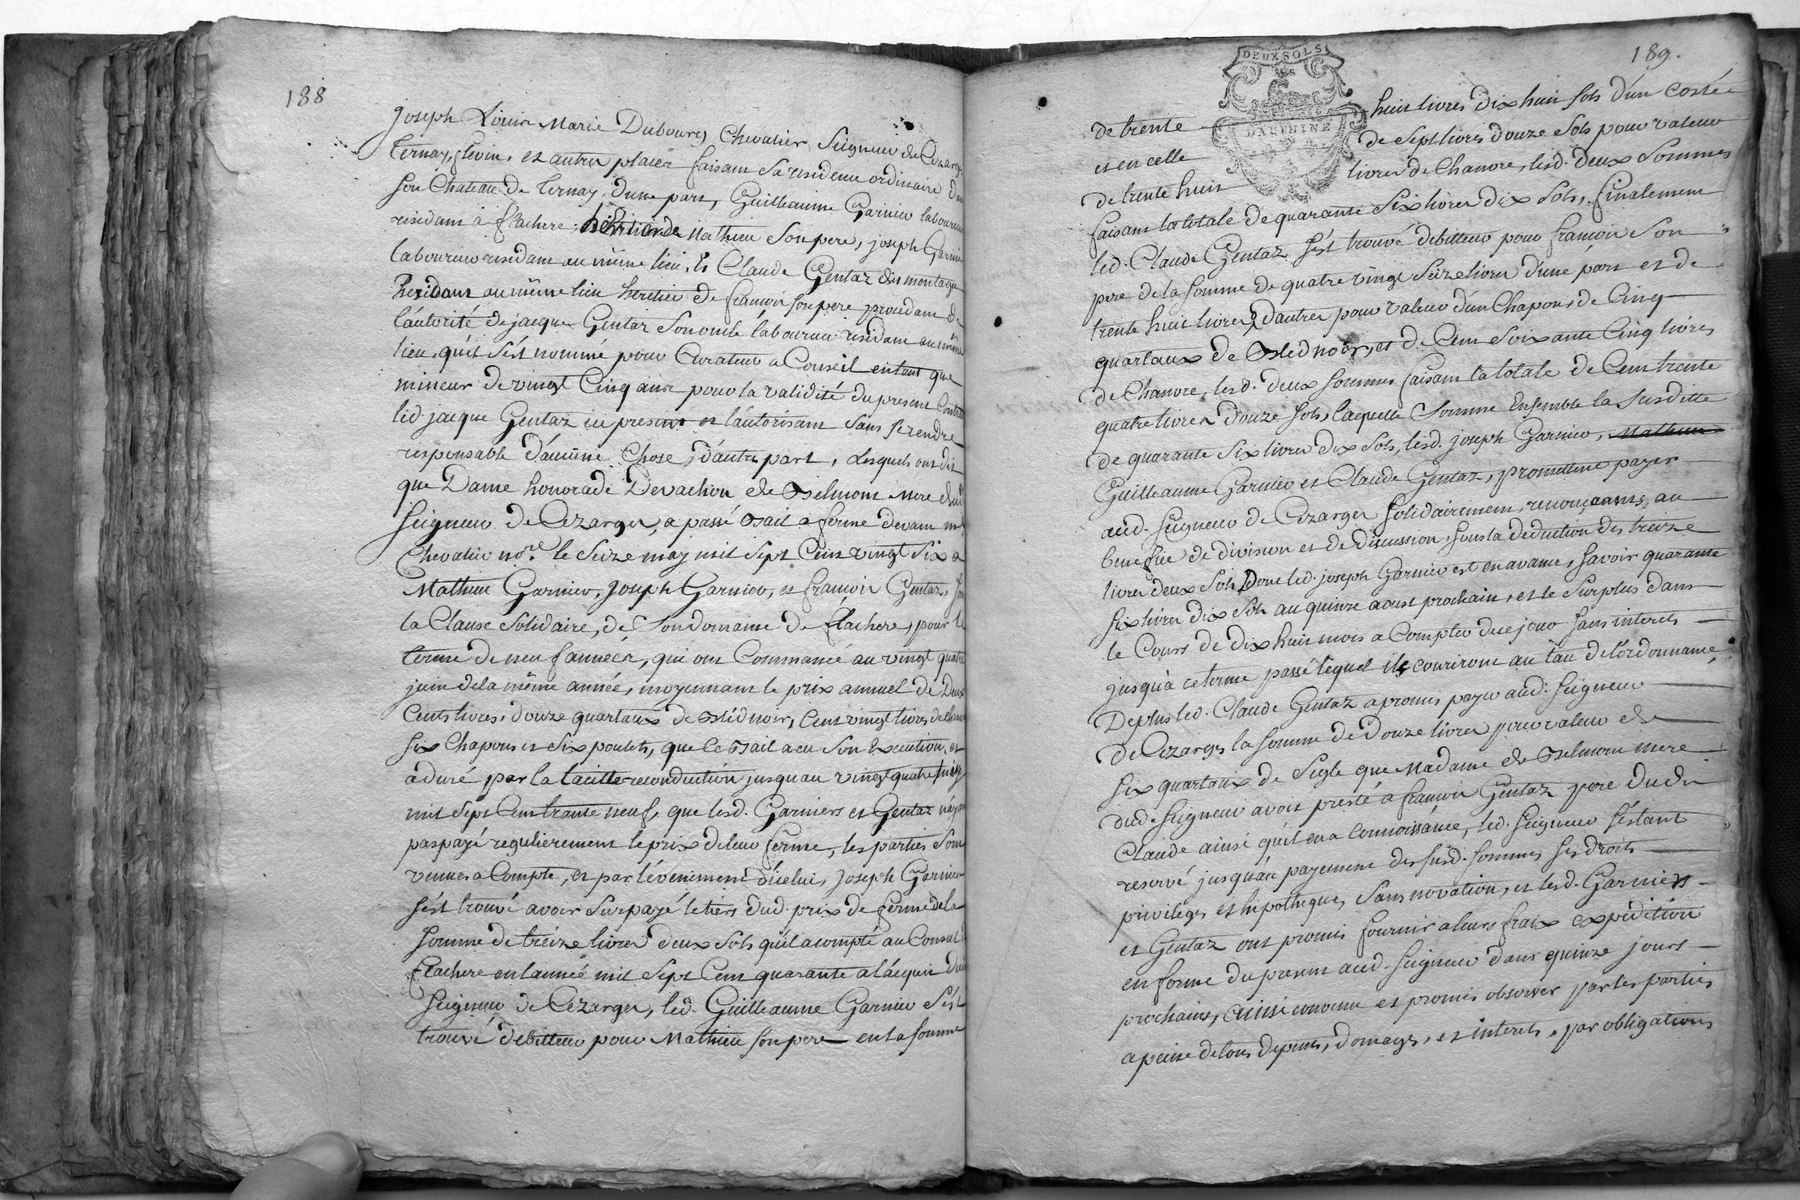 188
Joseph Louis Marie Dubourg Chevalier Seigneur de Cezarge
Ternay, flevin, et autres places faisant sa residence ordinaire dans
son Chateau de Ternay, d'une part, Guilleaume Garnier laboureur
residant à flachere heritier de Mathieu son pere, joseph Garnier
laboureur residant au même lieu, et Claude Gentaz dit montagne
Residant au même lieu heritier de françois son pere procedant de
l'autorité de jacque Gentaz son oncle laboureur residant au même
lieu, qu'il s'est nommé pour Curateur a Conseil en tant que
mineur de vingt Cinq ans pour la validité du present Contrat
led. jacque Gentaz ici present et l'autorisant sans se rendre
responsable d'aucune Chose, d'autre part, Lesquels ont dit
que Dame honorade Devachon de Belmont mere dud.
Seigneur de Cezarges, a passé Bail a ferme devant me
Chevalier nore. le Seize may mil Sept Cent vingt Six a
Mathieu Garnier, Joseph Garnier, et françois Gentaz, sous
la Clause Solidaire, de Son domaine de flachere, pour le
terme de neuf années, qui ont Commancé au vingt quatre
juin de la même année, moyennant le prix annuel de Deux
Cents livres, douze quartaux de Bled noir, Cent vingt livres de Chanvre
Six Chapons et Six poulets, que le Bail a eu Son Execution, et
a duré par la tacitte reconduction jusqu'au vingt quatre juin
mil Sept Cent trante neuf, que lesd. Garniers et Gentaz n'ayant
pas payé regulierement le prix de leur ferme, les parties Sont
venues a Compte, et par l'évenement d'icelui, Joseph Garnier
s'est trouvé avoir Surpayé le tiers dud. prix de ferme de la
Somme de treize livres deux Sols qu'il a compté au Consul
flachere en l'année mil Sept Cent quarante a l'acquit dud.
Seigneur de Cezarges, led. Guilleaume Garnier s'est
trouvé debitteur pour Mathieu Son pere en la Somme
189.
DEUX SOLS
DAUPHINE
de trente huit livres dix huit Sols d'un costé
et en celle de Sept livres douze Sols pour valeur
de trente huit livres de Chanvre, lesd. deux Sommes
faisant la totale de quarante Six livres dix Sols, finalement
led. Claude Gentaz s'est trouvé debitteur pour françois Son
pere de la Somme de quatre vingt Seize livres d'une part et de
trente huit livres d'autre pour valeur d'un Chapon, de Cinq
quartaux de Bled noir, et de Cent Soixante Cinq livres
de Chanvre, lesd. deux Sommes faisant la totale de Cent trente
quatre livres douze Sols, laquelle Somme Ensemble la Susditte
de quarante Six livres dix Sols, lesd. joseph Garnier, Mathieu
Guilleaume Garnier et Claude Gentaz, promettent payer
aud. Seigneur de Cezarges Solidairement, renonçants, au
benefice de division et de discussion, Sous la deduction des treize
livres deux Sols, Dont led. joseph Garnier est en avance, Savoir quarante
Six livres dix Sols au quinze aoust prochain, et le Surplus dans
le Cours de dix huit mois a Compter de ce jour Sans interets
jusqu'à ce terme passé lequel ils couriront au tau de l'ordonnance
De plus led. Claude Gentaz a promis payer aud. Seigneur
de Cezarges la Somme de Douze livres pour valeur de
Six quartaux de Segle que Madame de Belmont mere
dud. Seigneur avoit presté a françois Gentaz pere dudit
Claude ainsi qu'il en a connoissance, led. Seigneur s'étant
reservé jusqu'au payement des susd. Sommes ses droits
privileges et hipotheques, Sans novation, et lesd. Garniers
et Gentaz ont promis fournir a leurs fraix expedition
en forme du present aud. Seigneur dans quinze jours
prochains, ainsi convenu et promis observer par les parties
a peine de tous depens, domages, et interets, par obligations